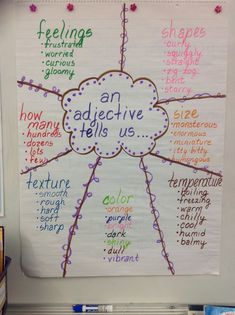 feelings
• frustrated
• worried
• curious
• gloomy
shapes
• curly
• squiggly
• straight
• zig-zag
• bent
• starry
an
adjective
tells us...
how
many
• hundreds
• dozens
• lots
• few
size
• monsterous
• enormous
• miniature
• itty bitty
• humongous
texture
• smooth
• rough
• hard
• soft
• sharp
color
• orange
• purple
• bright
• dark
• shiny
• dull
• vibrant
temperature
• boiling
• freezing
• warm
• chilly
• cool
• humid
• balmy